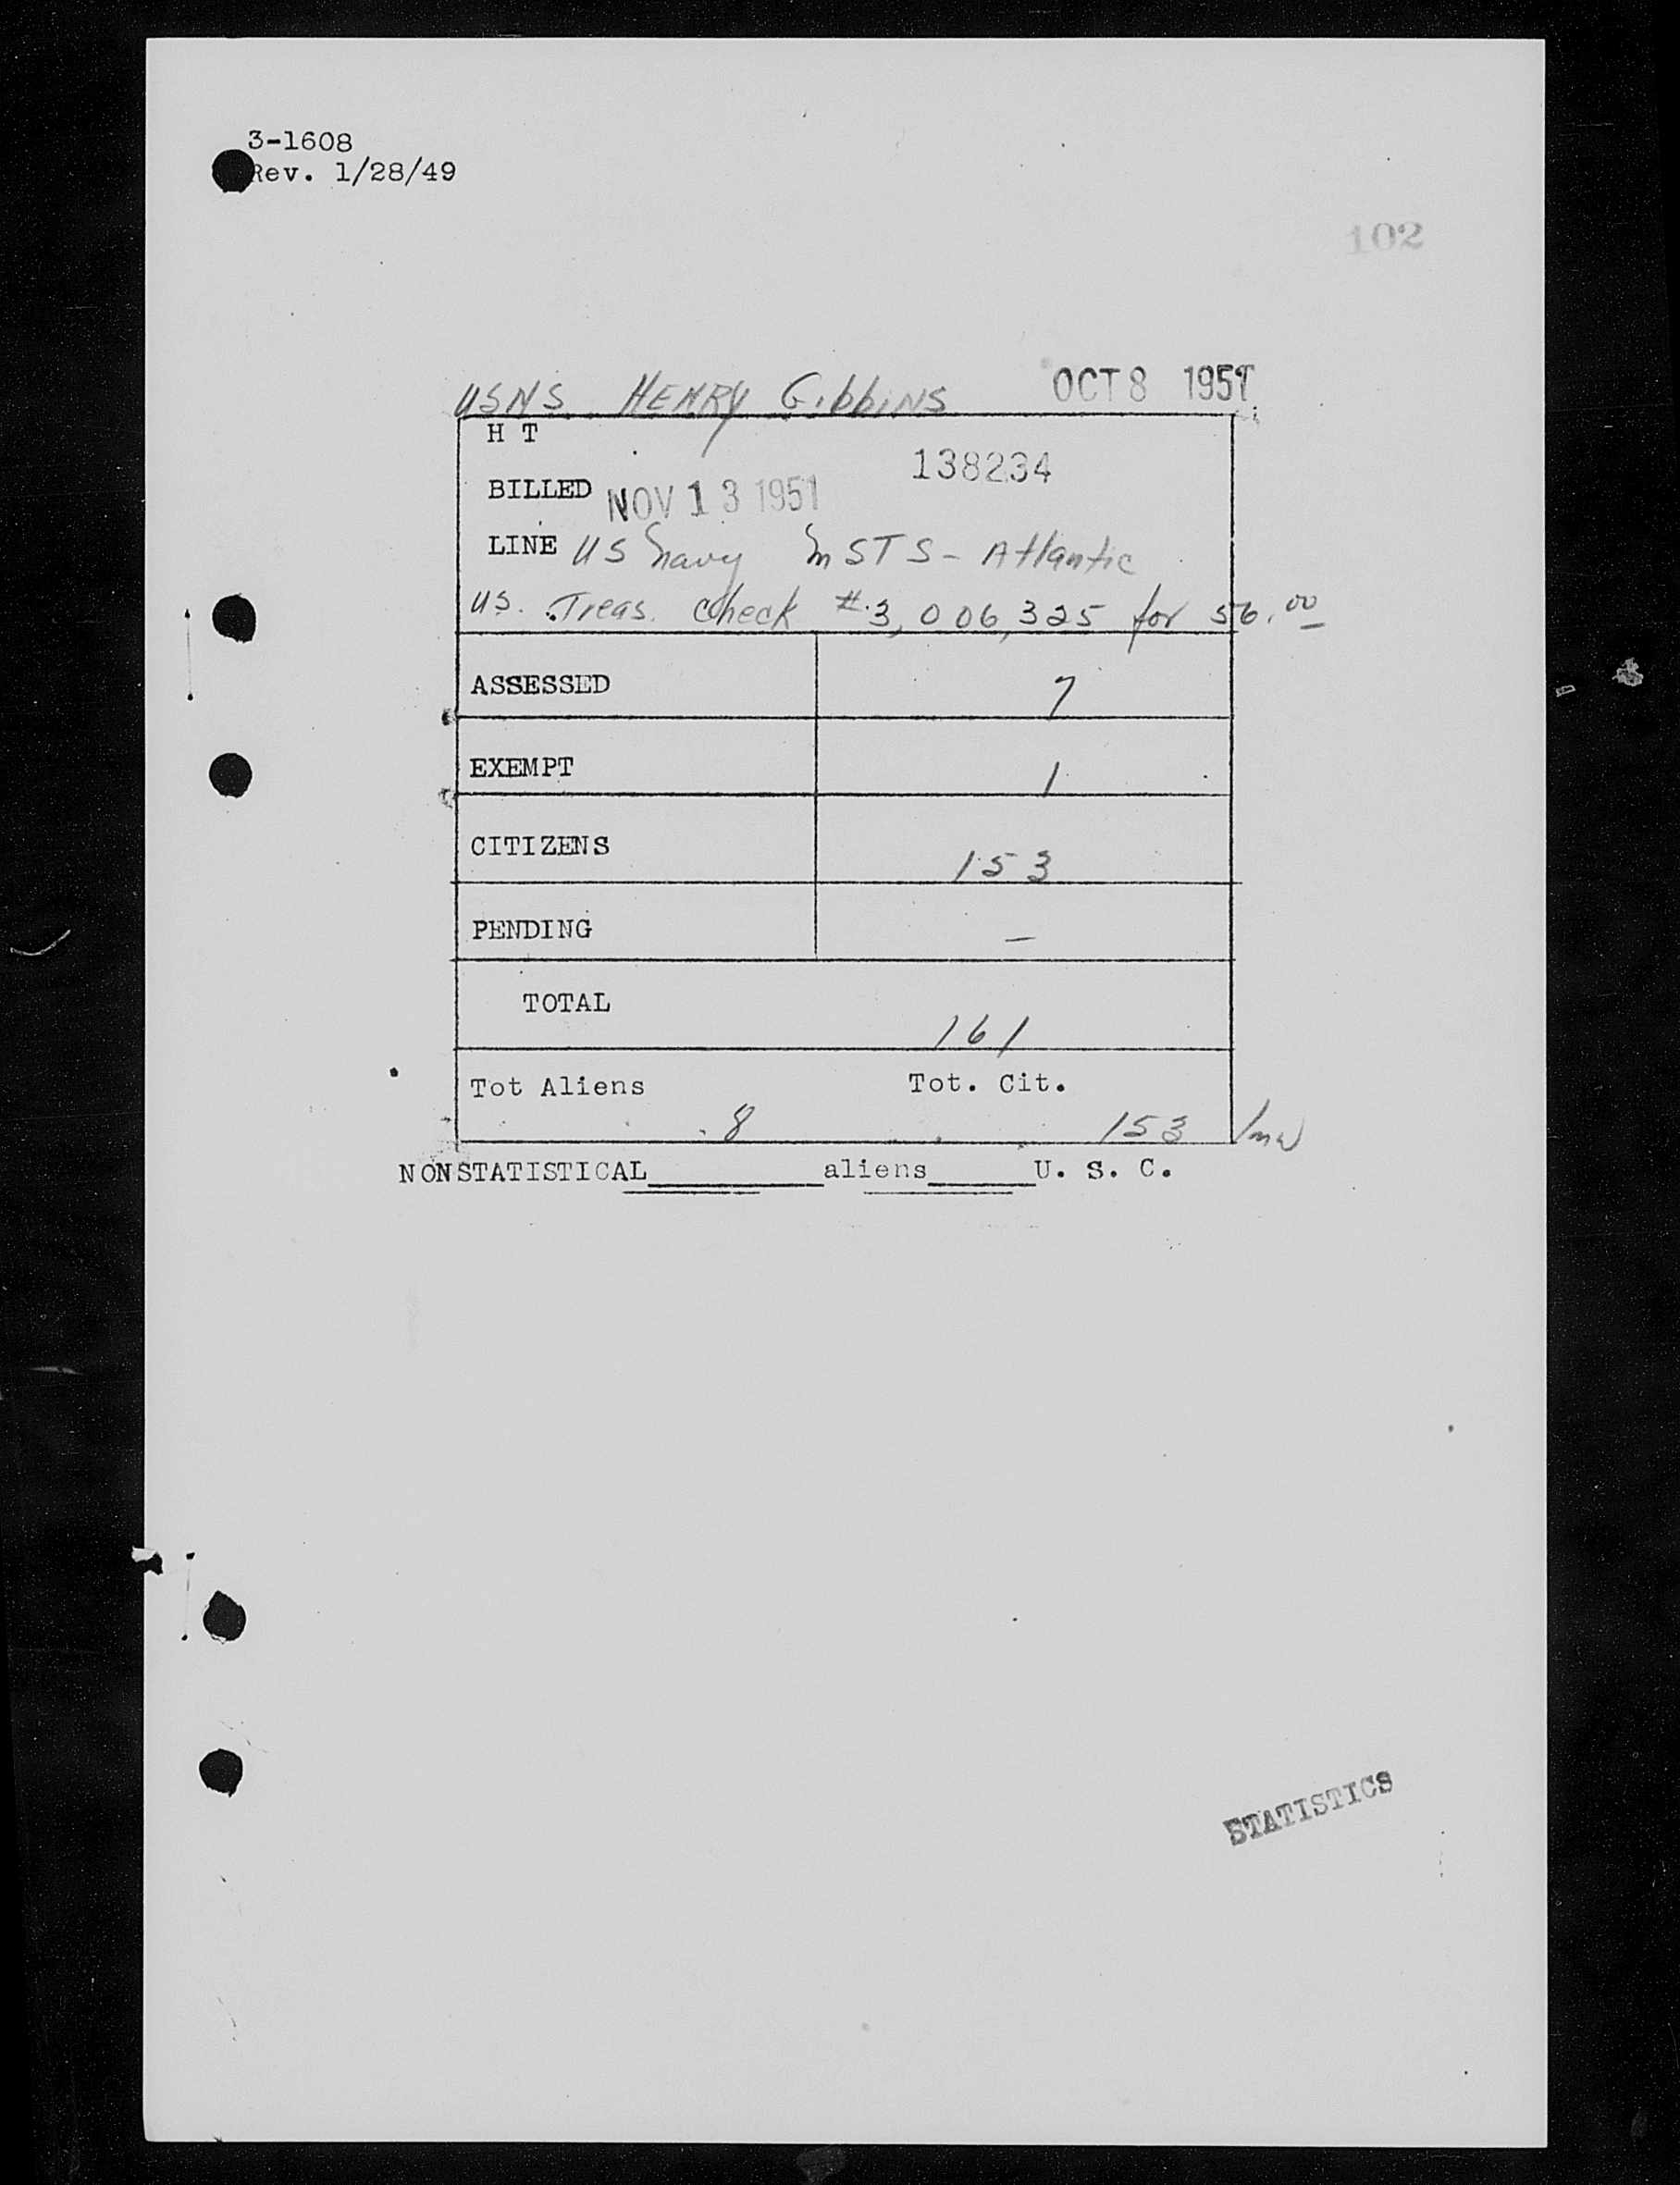 3-1608
Rev. 1/28/49
102
USNS HENRY Gibbins OCT 8 1951
H T
138234
BILLED NOV 13 1951
LINE US Navy MSTS - Atlantic
US. Treas. Check #3,006,325 for 56.00
ASSESSED 7
EXEMPT 1
CITIZENS 153
PENDING -
TOTAL 161
Tot Aliens Tot. Cit.
8 153
NONSTATISTICAL aliens U. S. C.
STATISTICS